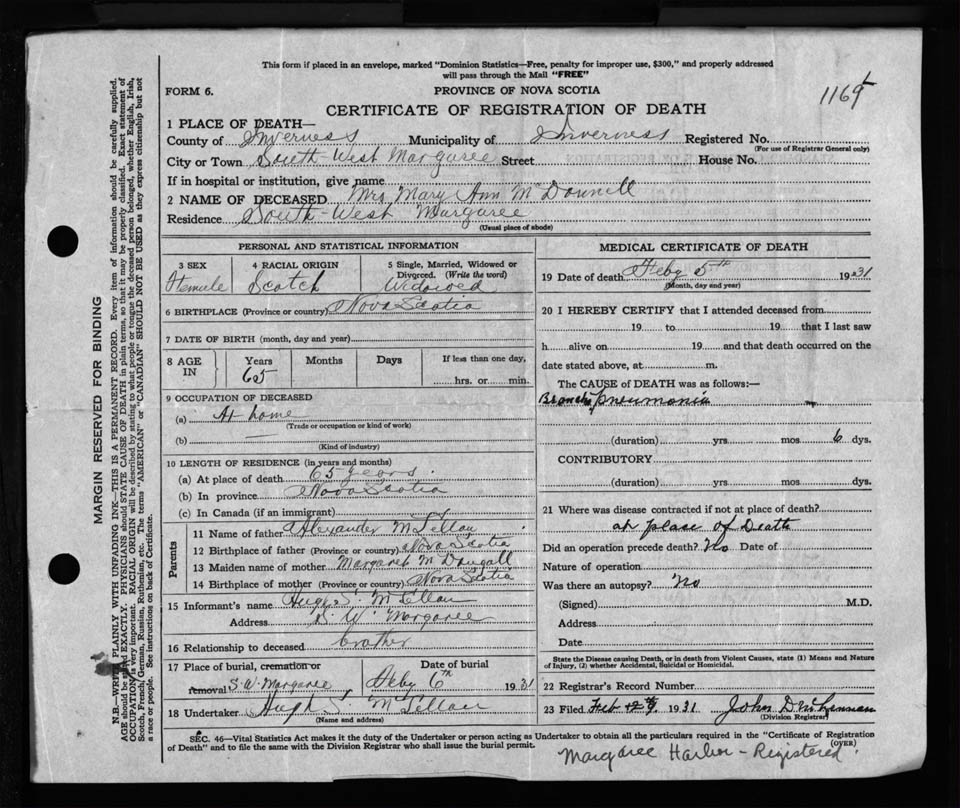 This form if placed in an envelope, marked "Dominion Statistics—Free, penalty for improper use, $300," and properly addressed
will pass through the Mail "FREE"
FORM 6.
PROVINCE OF NOVA SCOTIA
CERTIFICATE OF REGISTRATION OF DEATH
1 PLACE OF DEATH—
County of Inverness Municipality of Inverness Registered No.
(For use of Registrar General only)
City or Town South-West Margaree Street House No.
If in hospital or institution, give name
2 NAME OF DECEASED Mrs Mary Ann McDonnell
Residence South-West Margaree
(Usual place of abode)
PERSONAL AND STATISTICAL INFORMATION
3 SEX Female
4 RACIAL ORIGIN Scotch
5 Single, Married, Widowed or Divorced. (Write the word) Widowed
6 BIRTHPLACE (Province or country) Nova Scotia
7 DATE OF BIRTH (month, day and year)
8 AGE IN Years 65 Months Days If less than one day, hrs. or min.
9 OCCUPATION OF DECEASED
(a) At home
(Trade or occupation or kind of work)
(b) —
(Kind of industry)
10 LENGTH OF RESIDENCE (in years and months)
(a) At place of death 65 years
(b) In province Nova Scotia
(c) In Canada (if an immigrant)
Parents
11 Name of father Alexander McLellan
12 Birthplace of father (Province or country) Nova Scotia
13 Maiden name of mother Margaret McDougall
14 Birthplace of mother (Province or country) Nova Scotia
15 Informant's name Hugh S. McLellan
Address S W Margaree
16 Relationship to deceased brother
17 Place of burial, cremation or removal S.W. Margaree Date of burial Feby 6th 1931
18 Undertaker Hugh S McLellan
(Name and address)
MEDICAL CERTIFICATE OF DEATH
19 Date of death Feby 5th 1931
(Month, day and year)
20 I HEREBY CERTIFY that I attended deceased from
19 to 19 that I last saw
h alive on 19 and that death occurred on the
date stated above, at m.
The CAUSE of DEATH was as follows:—
Broncho pneumonia
(duration) yrs mos 6 dys.
CONTRIBUTORY
(duration) yrs mos dys.
21 Where was disease contracted if not at place of death?
at place of Death
Did an operation precede death? No Date of
Nature of operation
Was there an autopsy? No
(Signed) M.D.
Address
Date
State the Disease causing Death, or in death from Violent Causes, state (1) Means and Nature
of Injury, (2) whether Accidental, Suicidal or Homicidal.
22 Registrar's Record Number
23 Filed Feb 1931 John D
(Division Registrar)
SEC. 46—Vital Statistics Act makes it the duty of the Undertaker or person acting as Undertaker to obtain all the particulars required in the "Certificate of Registration
of Death" and to file the same with the Division Registrar who shall issue the burial permit.
(OVER)
Margaree Harbor - Registered
MARGIN RESERVED FOR BINDING
N.B.—WRITE PLAINLY WITH UNFADING INK—THIS IS A PERMANENT RECORD. Every item of information should be carefully supplied.
AGE should be stated EXACTLY. PHYSICIANS should STATE CAUSE OF DEATH in plain terms, so that it may be properly classified. Exact statement of
OCCUPATION is very important. RACIAL ORIGIN will be described by stating to what people or tongue the deceased person belonged, whether English, Irish,
Scotch, French, German, Russian, Ruthenian, etc. The terms "AMERICAN" or "CANADIAN" SHOULD NOT BE USED as they express citizenship but not
a race or people. See instructions on back of Certificate.